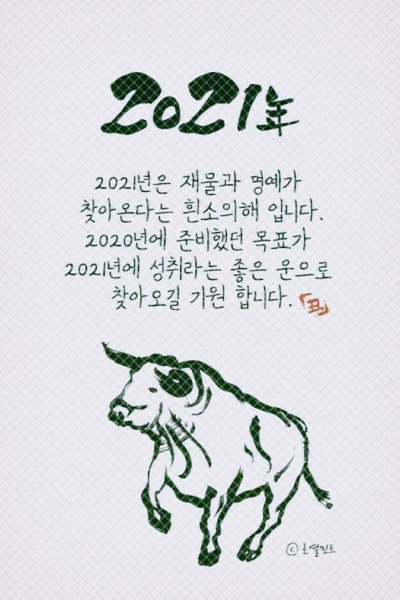 2021年
2021년은 재물과 명예가
찾아온다는 흰소의해 입니다.
2020년에 준비했던 목표가
2021년에 성취라는 좋은 운으로
찾아오길 기원 합니다.
「丑」
ⓒ로열민트